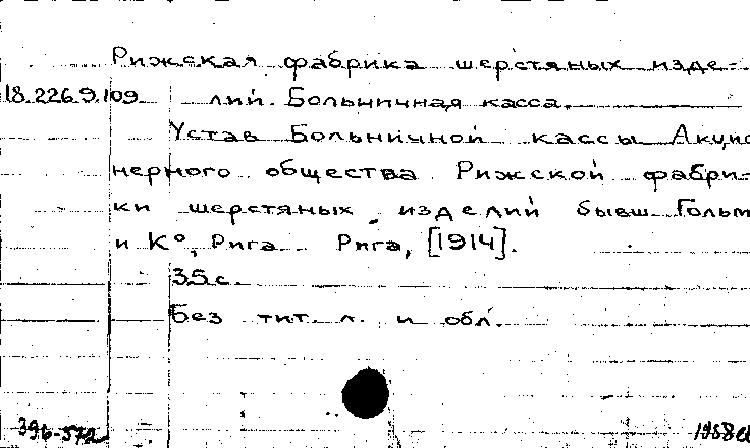 Рижская фабрика шерстяных изде-
18.226.9.109 лий. Больничная касса.
Устав Больничной кассы Акцио
нерного общества Рижской фабри-
ки шерстяных изделий бывш. Гольм
и К°, Рига. Рига, [1914].
35 с.
Без тит. л. и обл.
396-572